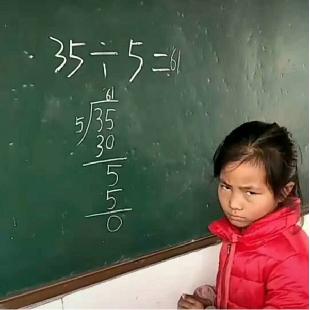 35÷5=61
61
5 35
30
5
5
0